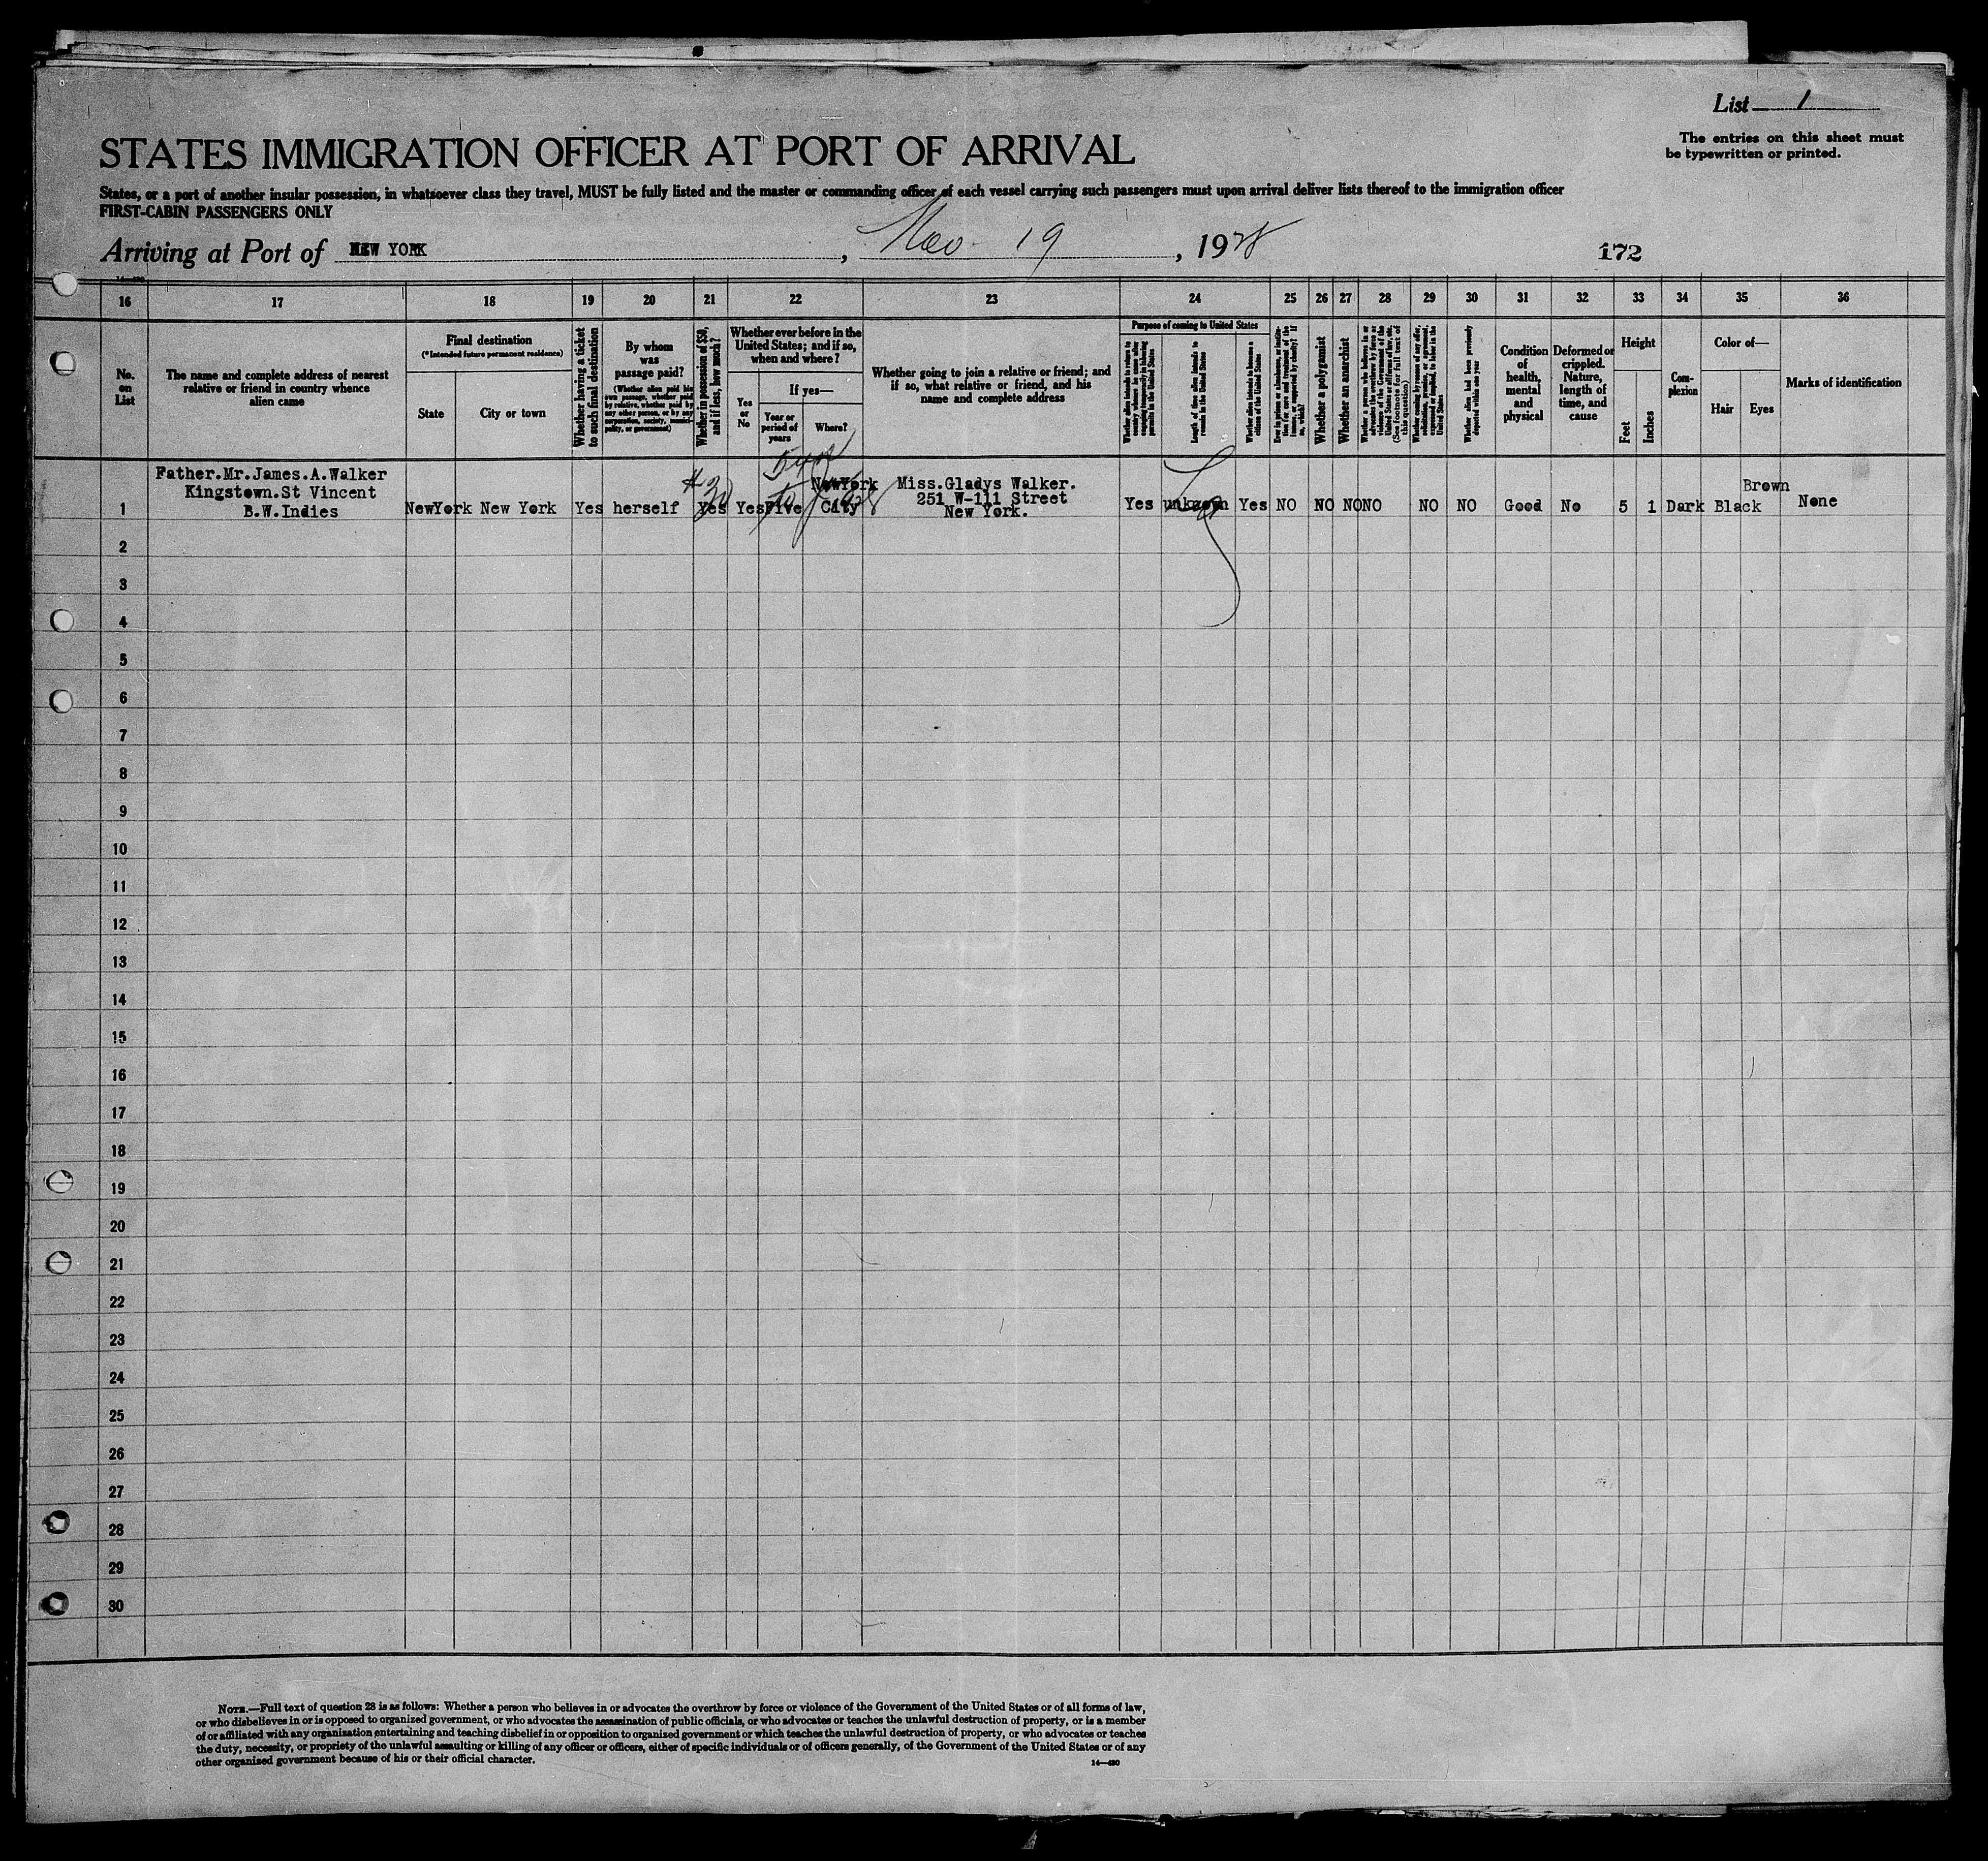 List 1
The entries on this sheet must
be typewritten or printed.
STATES IMMIGRATION OFFICER AT PORT OF ARRIVAL
States, or a port of another insular possession, in whatsoever class they travel, MUST be fully listed and the master or commanding officer of each vessel carrying such passengers must upon arrival deliver lists thereof to the immigration officer
FIRST-CABIN PASSENGERS ONLY
Arriving at Port of NEW YORK, Nov 19, 1928
172
16 17 18 19 20 21 22 23 24 25 26 27 28 29 30 31 32 33 34 35 36
No.
on
List
The name and complete address of nearest
relative or friend in country whence
alien came
Final destination
(*Intended future permanent residence)
State
City or town
Whether having a ticket
to such final destination
By whom
was
passage paid?
(Whether alien paid his
own passage, whether paid
by relative, whether paid by
any other person, or by any
corporation, society, munici-
pality, or government)
Whether in possession of $50,
and if less, how much?
Whether ever before in the
United States; and if so,
when and where?
Yes
or
No
If yes—
Year or
period of
years
Where?
Whether going to join a relative or friend; and
if so, what relative or friend, and his
name and complete address
Purpose of coming to United States
Whether alien intends to return to
country whence he came after
engaging temporarily in laboring
pursuits in the United States
Length of time alien intends to
remain in the United States
Whether alien intends to become a
citizen of the United States
Ever in prison or almshouse, or institu-
tion for care and treatment of the
insane, or supported by charity? If
so, which?
Whether a polygamist
Whether an anarchist
Whether a person who believes in or
advocates the overthrow by force or
violence of the Government of the
United States or all forms of law, etc.
(See footnote for full text of
this question)
Whether coming by reason of any offer,
solicitation, promise, or agreement,
expressed or implied, to labor in the
United States
Whether alien had been previously
deported within one year
Condition
of
health,
mental
and
physical
Deformed or
crippled.
Nature,
length of
time, and
cause
Height
Feet
Inches
Com-
plexion
Color of—
Hair
Eyes
Marks of identification
Father.Mr.James.A.Walker
Kingstown.St Vincent
B.W.Indies
1 NewYork New York Yes herself $30 Yes Yes Five NewYork City
Miss.Gladys Walker.
251 W-111 Street
New York.
Yes unknown Yes NO NO NO NO NO NO Good No 5 1 Dark Black Brown None
2
3
4
5
6
7
8
9
10
11
12
13
14
15
16
17
18
19
20
21
22
23
24
25
26
27
28
29
30
NOTE.—Full text of question 28 is as follows: Whether a person who believes in or advocates the overthrow by force or violence of the Government of the United States or of all forms of law,
or who disbelieves in or is opposed to organized government, or who advocates the assassination of public officials, or who advocates or teaches the unlawful destruction of property, or is a member
of or affiliated with any organization entertaining and teaching disbelief in or opposition to organized government or which teaches the unlawful destruction of property, or who advocates or teaches
the duty, necessity, or propriety of the unlawful assaulting or killing of any officer or officers, either of specific individuals or of officers generally, of the Government of the United States or of any
other organized government because of his or their official character.
14—480